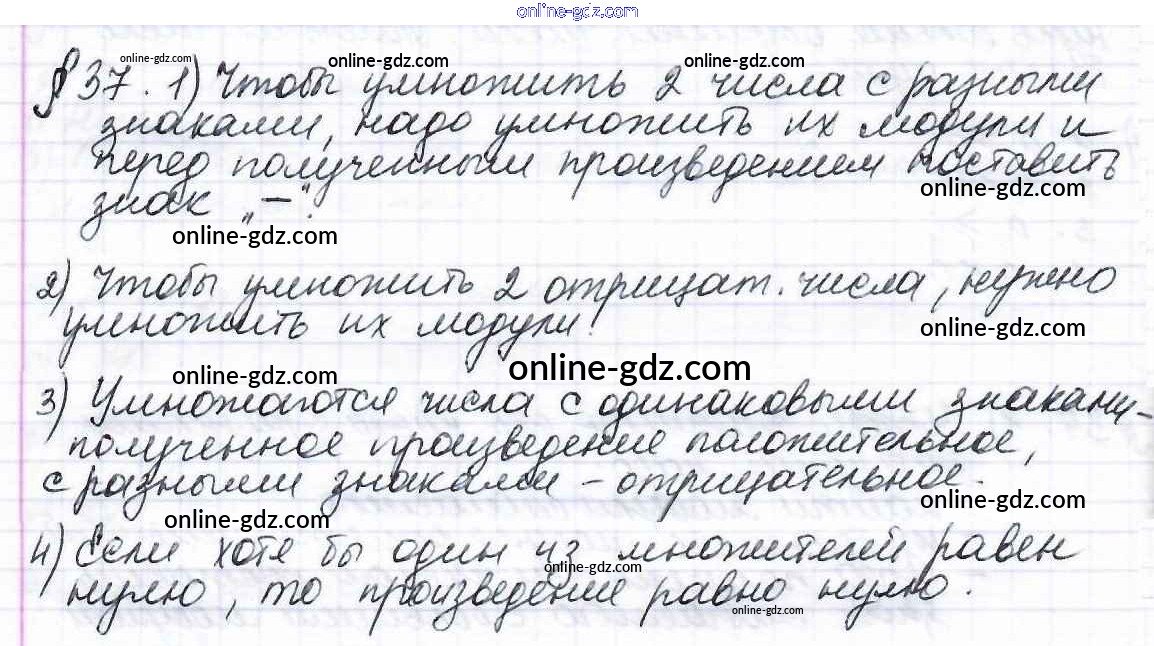 online-gdz.com
online-gdz.com
online-gdz.com
online-gdz.com
§ 37. 1) Чтобы умножить 2 числа с разными
знаками, надо умножить их модули и
перед полученным произведением поставить
online-gdz.com
знак „–“.
online-gdz.com
2) Чтобы умножить 2 отрицат. числа, нужно
умножить их модули.
online-gdz.com
online-gdz.com
online-gdz.com
3) Умножаются числа с одинаковыми знаками –
полученное произведение положительное,
с разными знаками – отрицательное.
online-gdz.com
online-gdz.com
4) Если хотя бы один из множителей равен
online-gdz.com
нулю, то произведение равно нулю.
online-gdz.com